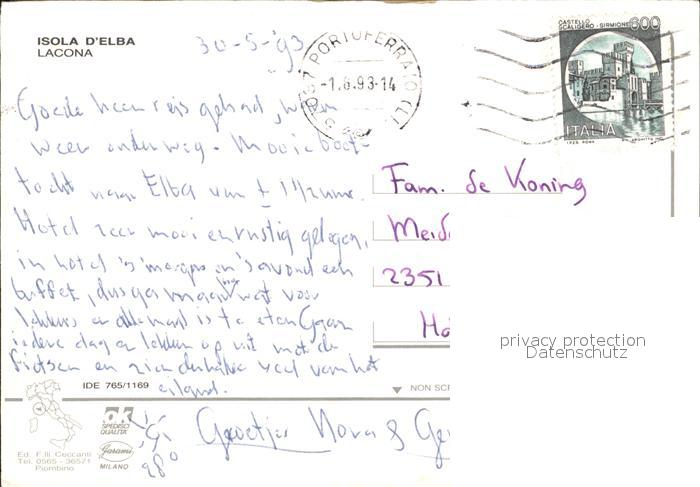 ISOLA D'ELBA
LACONA
30-5-'93
57037 PORTOFERRAIO (LI)
-1.6.93-14
CASTELLO
SCALIGERO - SIRMIONE
600
ITALIA
I.P.Z.S. ROMA
Goede heenreis gehad,
weer onderweg. Mooie boot-
tocht naar Elba van ± 1 1/2 uur.
Hotel zeer mooi en rustig gelegen,
in hotel 's morgens en 's avonds een
buffet, dus ga maar wat voor
lekkers en allemaal is te eten Gaan
iedere dag er lekker op uit met de
fietsen en zien veel van het
eiland.
Fam. de Koning
Meid
2351
Ho
privacy protection
Datenschutz
IDE 765/1169
NON SCR
OK
SPEDISCI
QUALITÀ
Garami
MILANO
Ed. F.lli Ceccanti
Tel. 0565 - 36571
Piombino
28°
Groetjes Nora & Ge